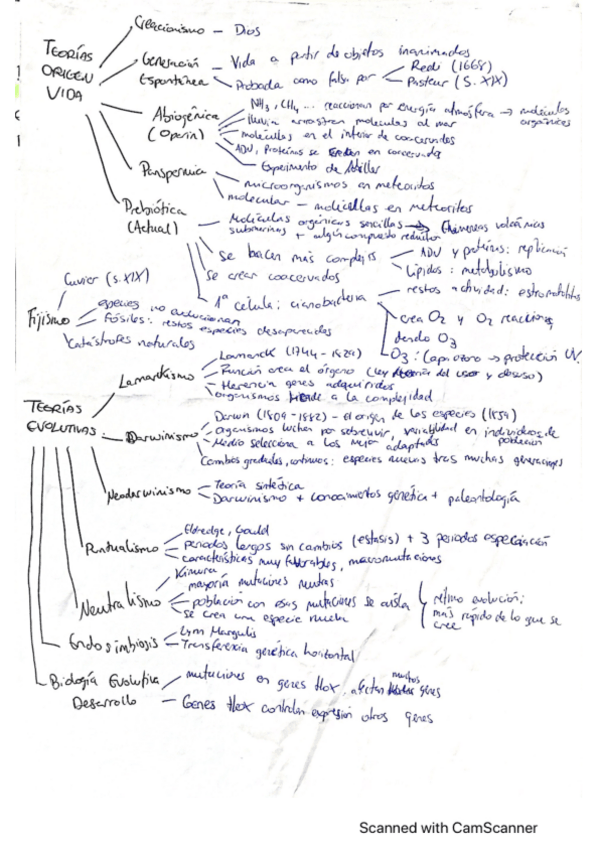 TEORÍAS ORIGEN VIDA
Creacionismo - Dios
Generación Espontánea
Vida a partir de objetos inanimados
Probada como falsa por
Redi (1668)
Pasteur (S. XIX)
Abiogénica (Oparin)
NH3, CH4, ... reaccionan por energía atmósfera → moléculas orgánicas
lluvia arrastran moléculas al mar
moléculas en el interior de coacervados
ADN, Proteínas se en coacervados
Experimento de Miller
Panspermia
microorganismos en meteoritos
molecular - moléculas en meteoritos
Prebiótica (Actual)
Moléculas orgánicas sencillas → Chimeneas volcánicas
submarinas + algún compuesto reductor
Se hacen más complejas
ADN y proteínas: replicación
Lípidos: metabolismo
Se crean coacervados
1ª célula: cianobacteria
restos actividad: estromatolitos
crea O2 y O2 reacciona, dando O3
O3: Capa ozono → protección UV.
Fijismo
Cuvier (s. XIX)
especies no evolucionan
Fósiles: restos especies desaparecidas
Catástrofes naturales
TEORÍAS EVOLUTIVAS
Lamarckismo
Lamarck (1744-1829)
Función crea el órgano (Ley del uso y desuso)
Herencia genes adquiridos
organismos tiende a la complejidad
Darwinismo
Darwin (1809-1882) - el origen de las especies (1859)
Organismos luchan por sobrevivir, variabilidad en individuos de población
Medio selecciona a los mejor adaptados
Cambios graduales, continuos: especies nuevas tras muchas generaciones
Neodarwinismo
Teoría sintética
Darwinismo + conocimientos genética + paleontología
Puntualismo
Eldredge, Gould
periodos largos sin cambios (estasis) + 3 periodos especiación
características muy favorables, macromutaciones
Neutralismo
Kimura
mayoría mutaciones neutras
población con esas mutaciones se aísla
se crea una especie nueva
ritmo evolución: más rápido de lo que se cree
Endosimbiosis
Lynn Margulis
Transferencia genética horizontal
Biología Evolutiva Desarrollo
mutaciones en genes Hox, afectan muchos genes
Genes Hox controlan expresión otros genes
Scanned with CamScanner